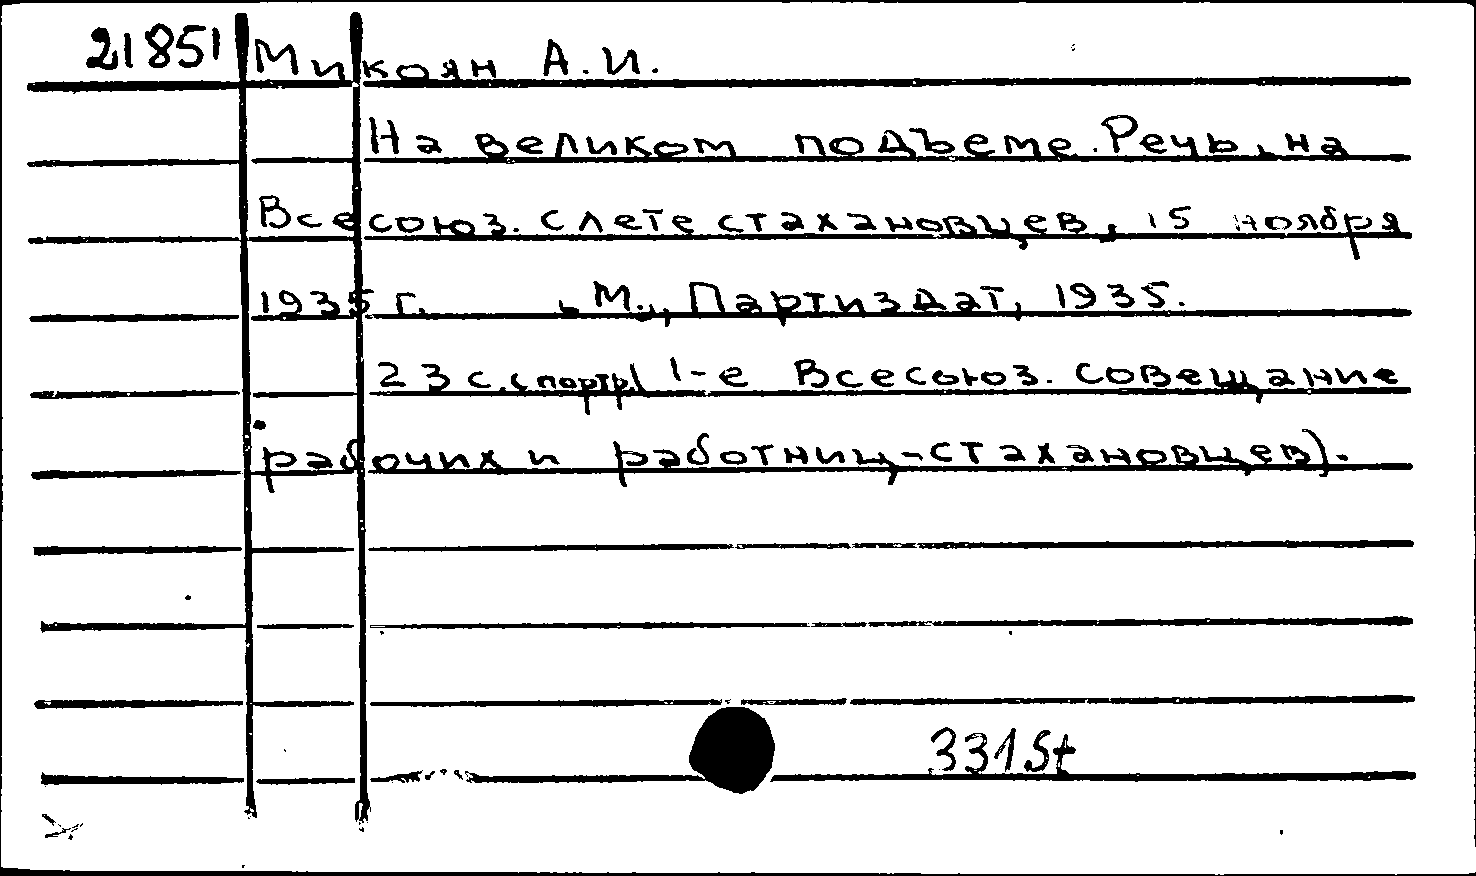 21851 Микоян А.И.
На великом подъеме. Речь на
Всесоюз. слете стахановцев, 15 ноября
1935 г. М., Партиздат, 1935.
23 с. с портр. (1-е Всесоюз. совещание
рабочих и работниц-стахановцев).
331St